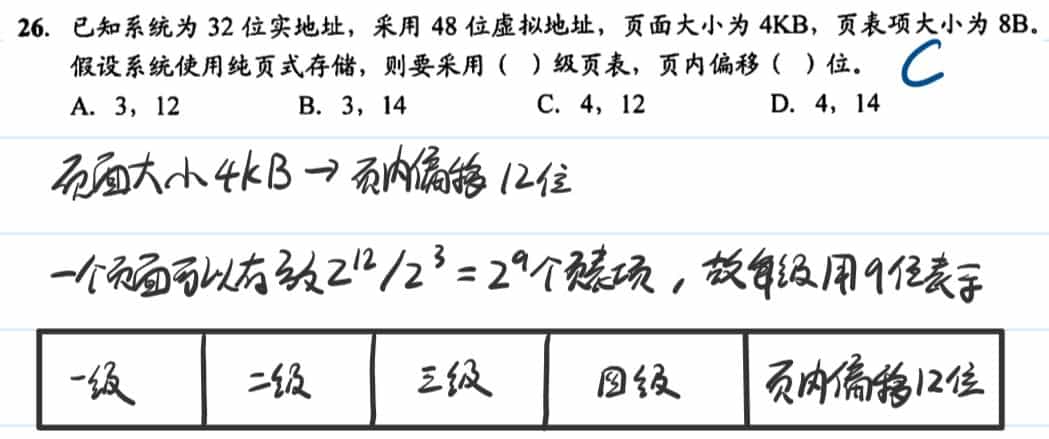 26. 已知系统为 32 位实地址，采用 48 位虚拟地址，页面大小为 4KB，页表项大小为 8B。
假设系统使用纯页式存储，则要采用（ ）级页表，页内偏移（ ）位。 C
A. 3，12 B. 3，14 C. 4，12 D. 4，14
页面大小4kB→页内偏移12位
一个页面可以存放2¹²/2³=2⁹个页表项，故每级用9位表示
一级 二级 三级 四级 页内偏移12位